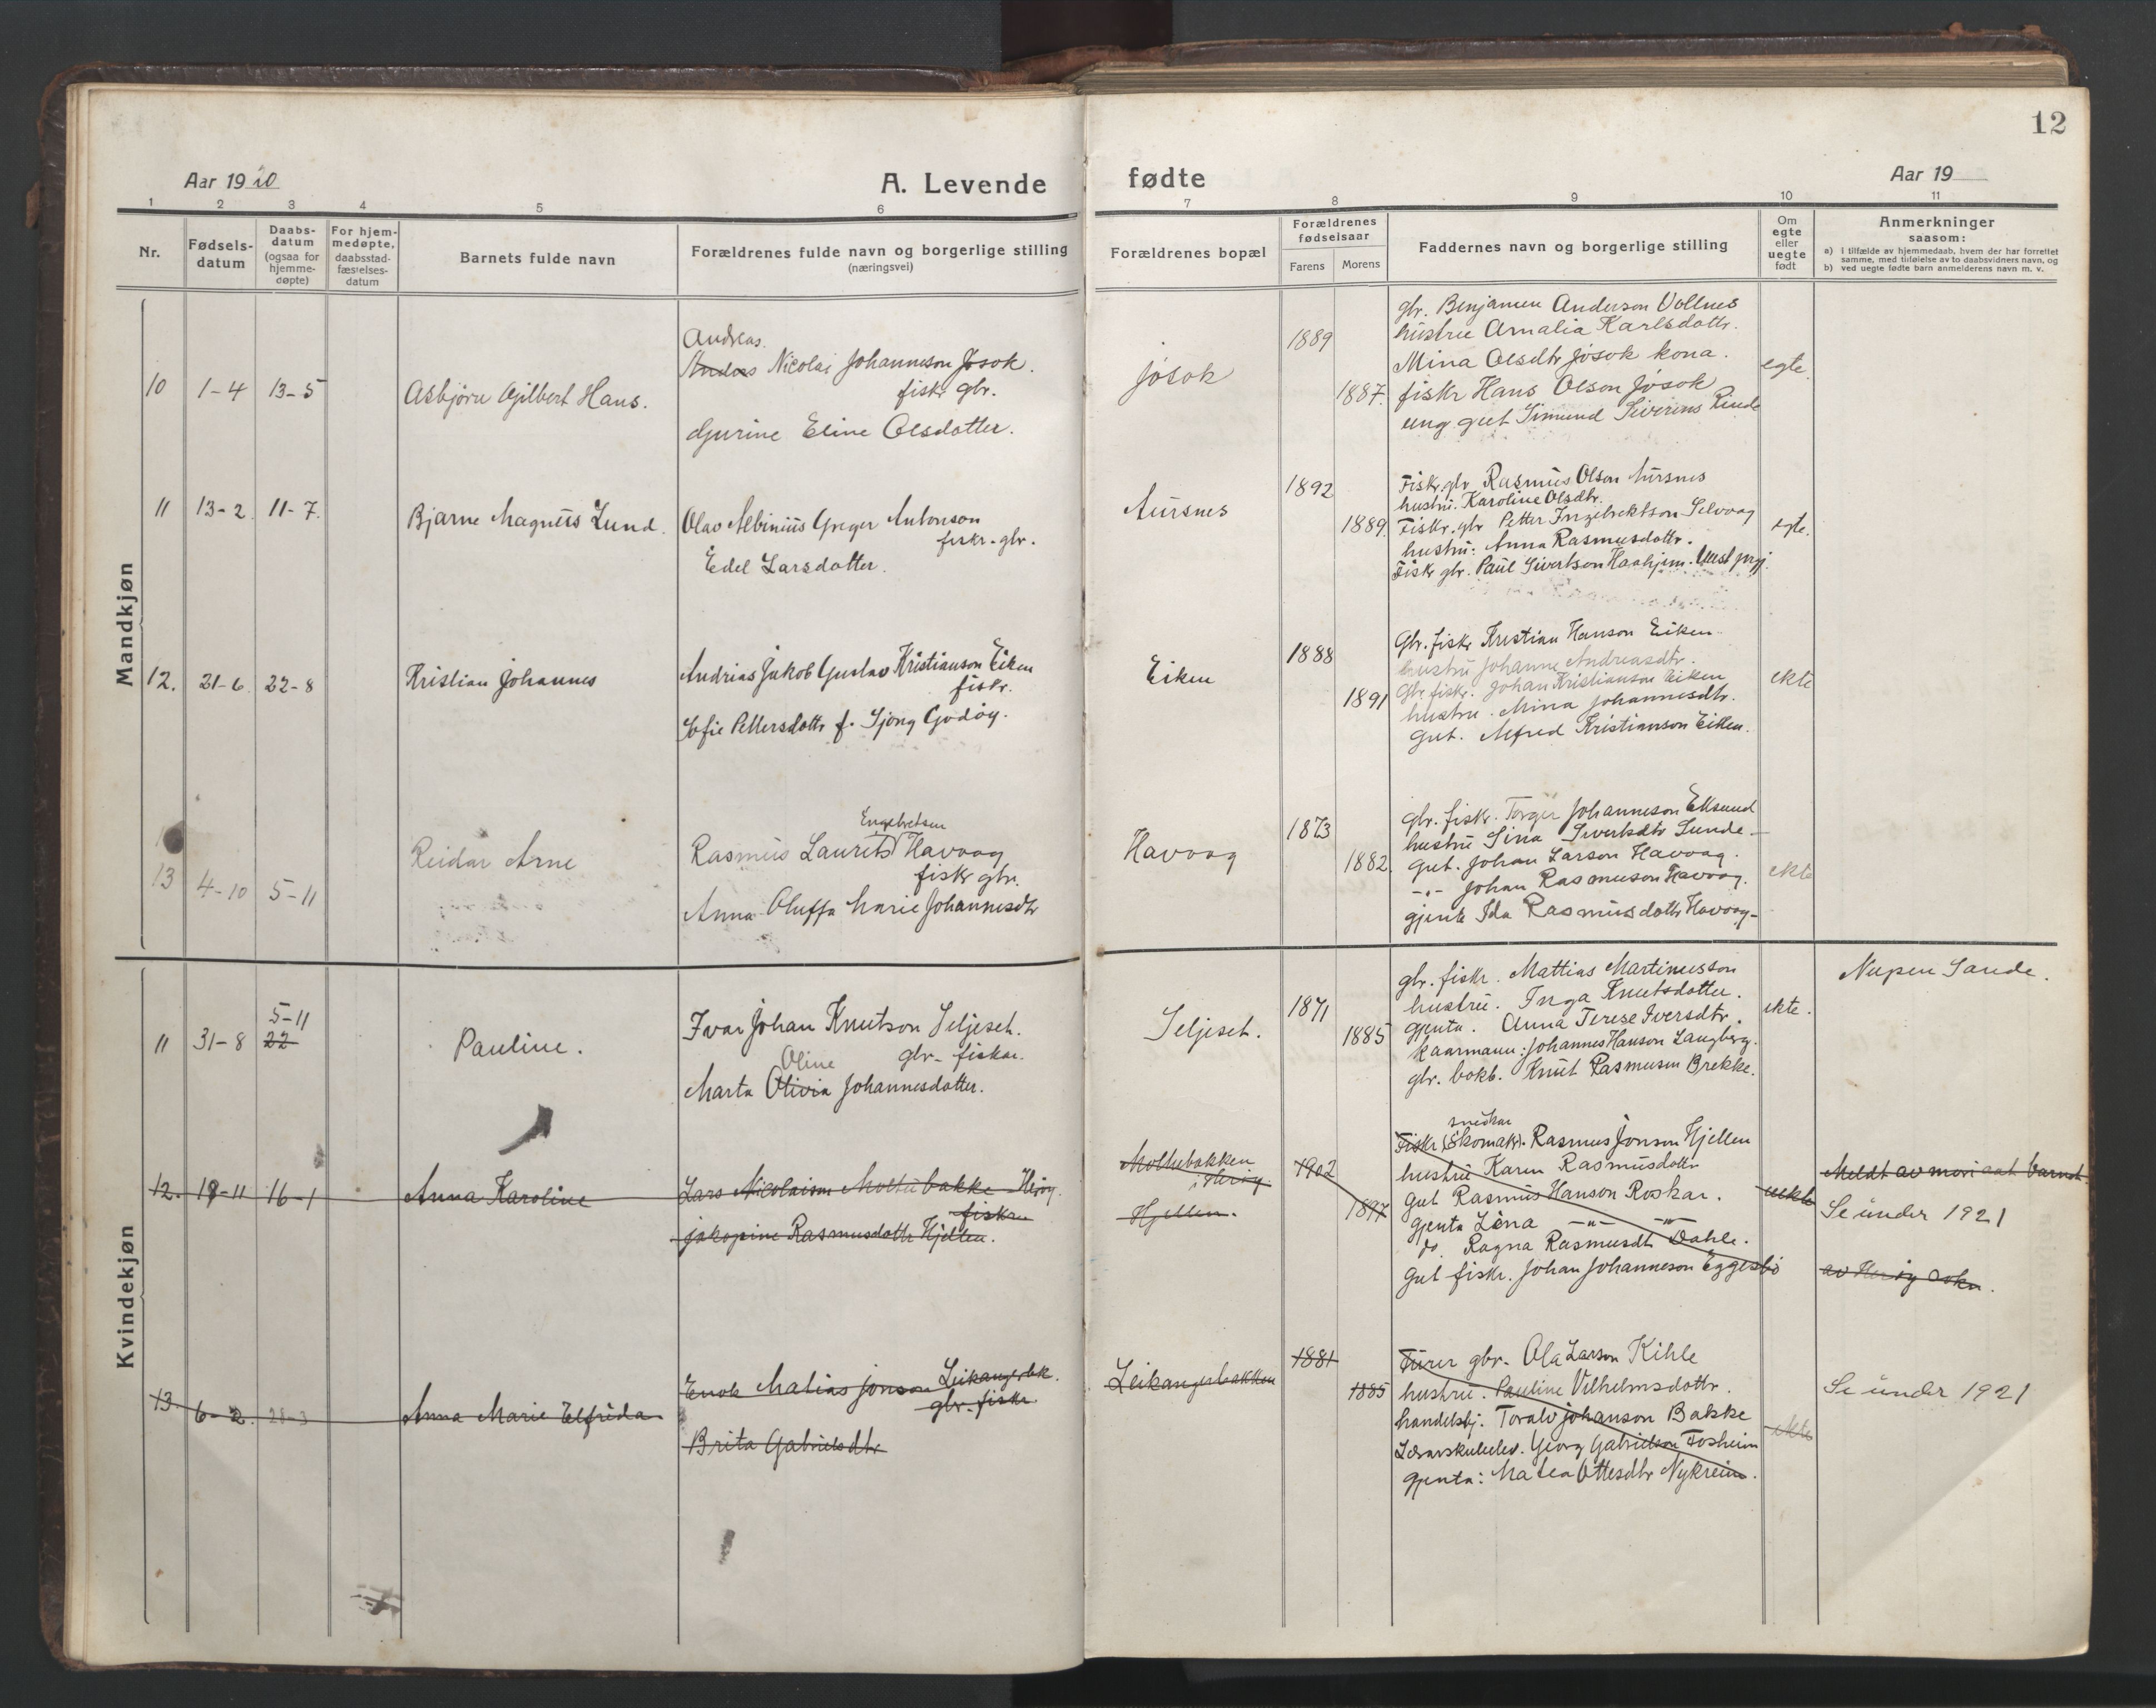 12
Aar 1920
A. Levende
fødte
Aar 19
1 2 3 4 5 6 7 8 9 10 11
Nr.
Fødsels-
datum
Daabs-
datum
(ogsaa for
hjemme-
døpte)
For hjem-
medøpte,
daabsstad-
fæstelses-
datum
Barnets fulde navn
Forældrenes fulde navn og borgerlige stilling
(næringsvei)
Forældrenes bopæl
Forældrenes
fødselsaar
Farens
Morens
Faddernes navn og borgerlige stilling
Om
egte
eller
uegte
født
Anmerkninger
saasom:
a) i tilfælde av hjemmedaab, hvem der har forrettet
samme, med tilføielse av to daabsvidners navn, og
b) ved uegte fødte barn anmelderens navn m. v.
Mandkjøn
10
1-4
13-5
Asbjørn Gilbert Hans.
Andreas.
Anders Nicolai Johanneson Jøsok.
fiskr gbr.
Gurine Eline Olsdotter.
Jøsok
1889
1887.
gbr. Benjamen Anderson Vollnes
hustru Amalia Karlsdottr.
Mina Olsdtr Jøsok kona.
fiskr Hans Olson Jøsok
ung gut Simund Siverins Rinde
egte.
11
13-2.
11-7.
Bjarne Magnus Lund.
Olav Albinius Greger Antonson
fiskr. gbr.
Edel Larsdotter.
Aursnes
1892
1889.
Fiskr. gbr Rasmus Olson Aursnes
hustru. Karoline Olsdtr.
Fiskr. gbr Petter Ingebrektson Selvaag
hustru: Anna Rasmusdottr.
Fiskr gbr. Paul Sivertson Haahjem.
egte.
12.
21-6.
22-8
Kristian Johannes
Andrias Jakob Gustav Kristianson Eiken
fiskr.
Sofie Pettersdottr f. Gjong Godøy.
Eiken
1888
1891
Gbr. fiskr Kristian Hanson Eiken
hustru Johanne Andreasdtr.
Gbr. fiskr. Johan Kristianson Eiken
hustru. Mina Johannesdtr.
Gut. Alfred Kristianson Eiken.
ekte
13
4-10
5-11
Reidar Arne
Engebretsen
Rasmus Laurits Havaag
fiskr gbr.
Anna Oluffa Marie Johannesdtr
Havaag
1873
1882.
gbr. fiskr. Torger Johanneson Eiksund
hustru Sina Sivertsdtr Sunde.
gut. Johan Larson Havaag.
-"- Johan Rasmuson Havaag.
gjente Ida Rasmusdottr Havaag-
ekte
Kvindekjøn
11
31-8
5-11
22
Pauline.
Ivar Johan Knutson Seljeset.
gbr- fiskar.
Oline
Marta Olivia Johannesdotter.
Seljeset.
1871
1885
gbr. fiskr. Mattias Martinusson
hustru. Inga Knutsdotter.
gjenta. Anna Terese Iversdtr.
kaarmann: Johannes Hanson Langberg.
gbr. bokb. Knut Rasmusen Brekke.
ekte.
Nupen Sande.
12.
19-11
16-1
Anna Karoline
Lars Nicolaison Moltubakke Herøy.
fiskar
Jakopine Rasmusdottr Hjellen.
Moltubakken
i Herøy
Hjellen.
1902
1897
snedkar
Fiskr (Skomakr). Rasmus Jonson Hjellen
hustru Karen Rasmusdottr
Gut Rasmus Hanson Roskar.
Gjenta Lina -"- -"-
do. Ragna Rasmusdt Dahle.
Gut fiskr. Johan Johanneson Eggesbø
uekte
Meldt av mori
Se under 1921
av Herøy Sokn.
13.
6-2.
28-3
Anna Marie Elfrida
Enok Matias Jonson Leikangerbk.
gbr. fiskr.
Brita Gabrielsdtr
Leikangerbakken
1881
1885
Furer gbr. Ola Larson Kihle
hustru. Pauline Vilhelmsdottr.
handelsbj. Toralv Johanson Bakke
Lærarskuleelev. Georg Gabrielson Fosheim
Gjenta: Matea Ottesdtr Nykreim.
ekte
Se under 1921